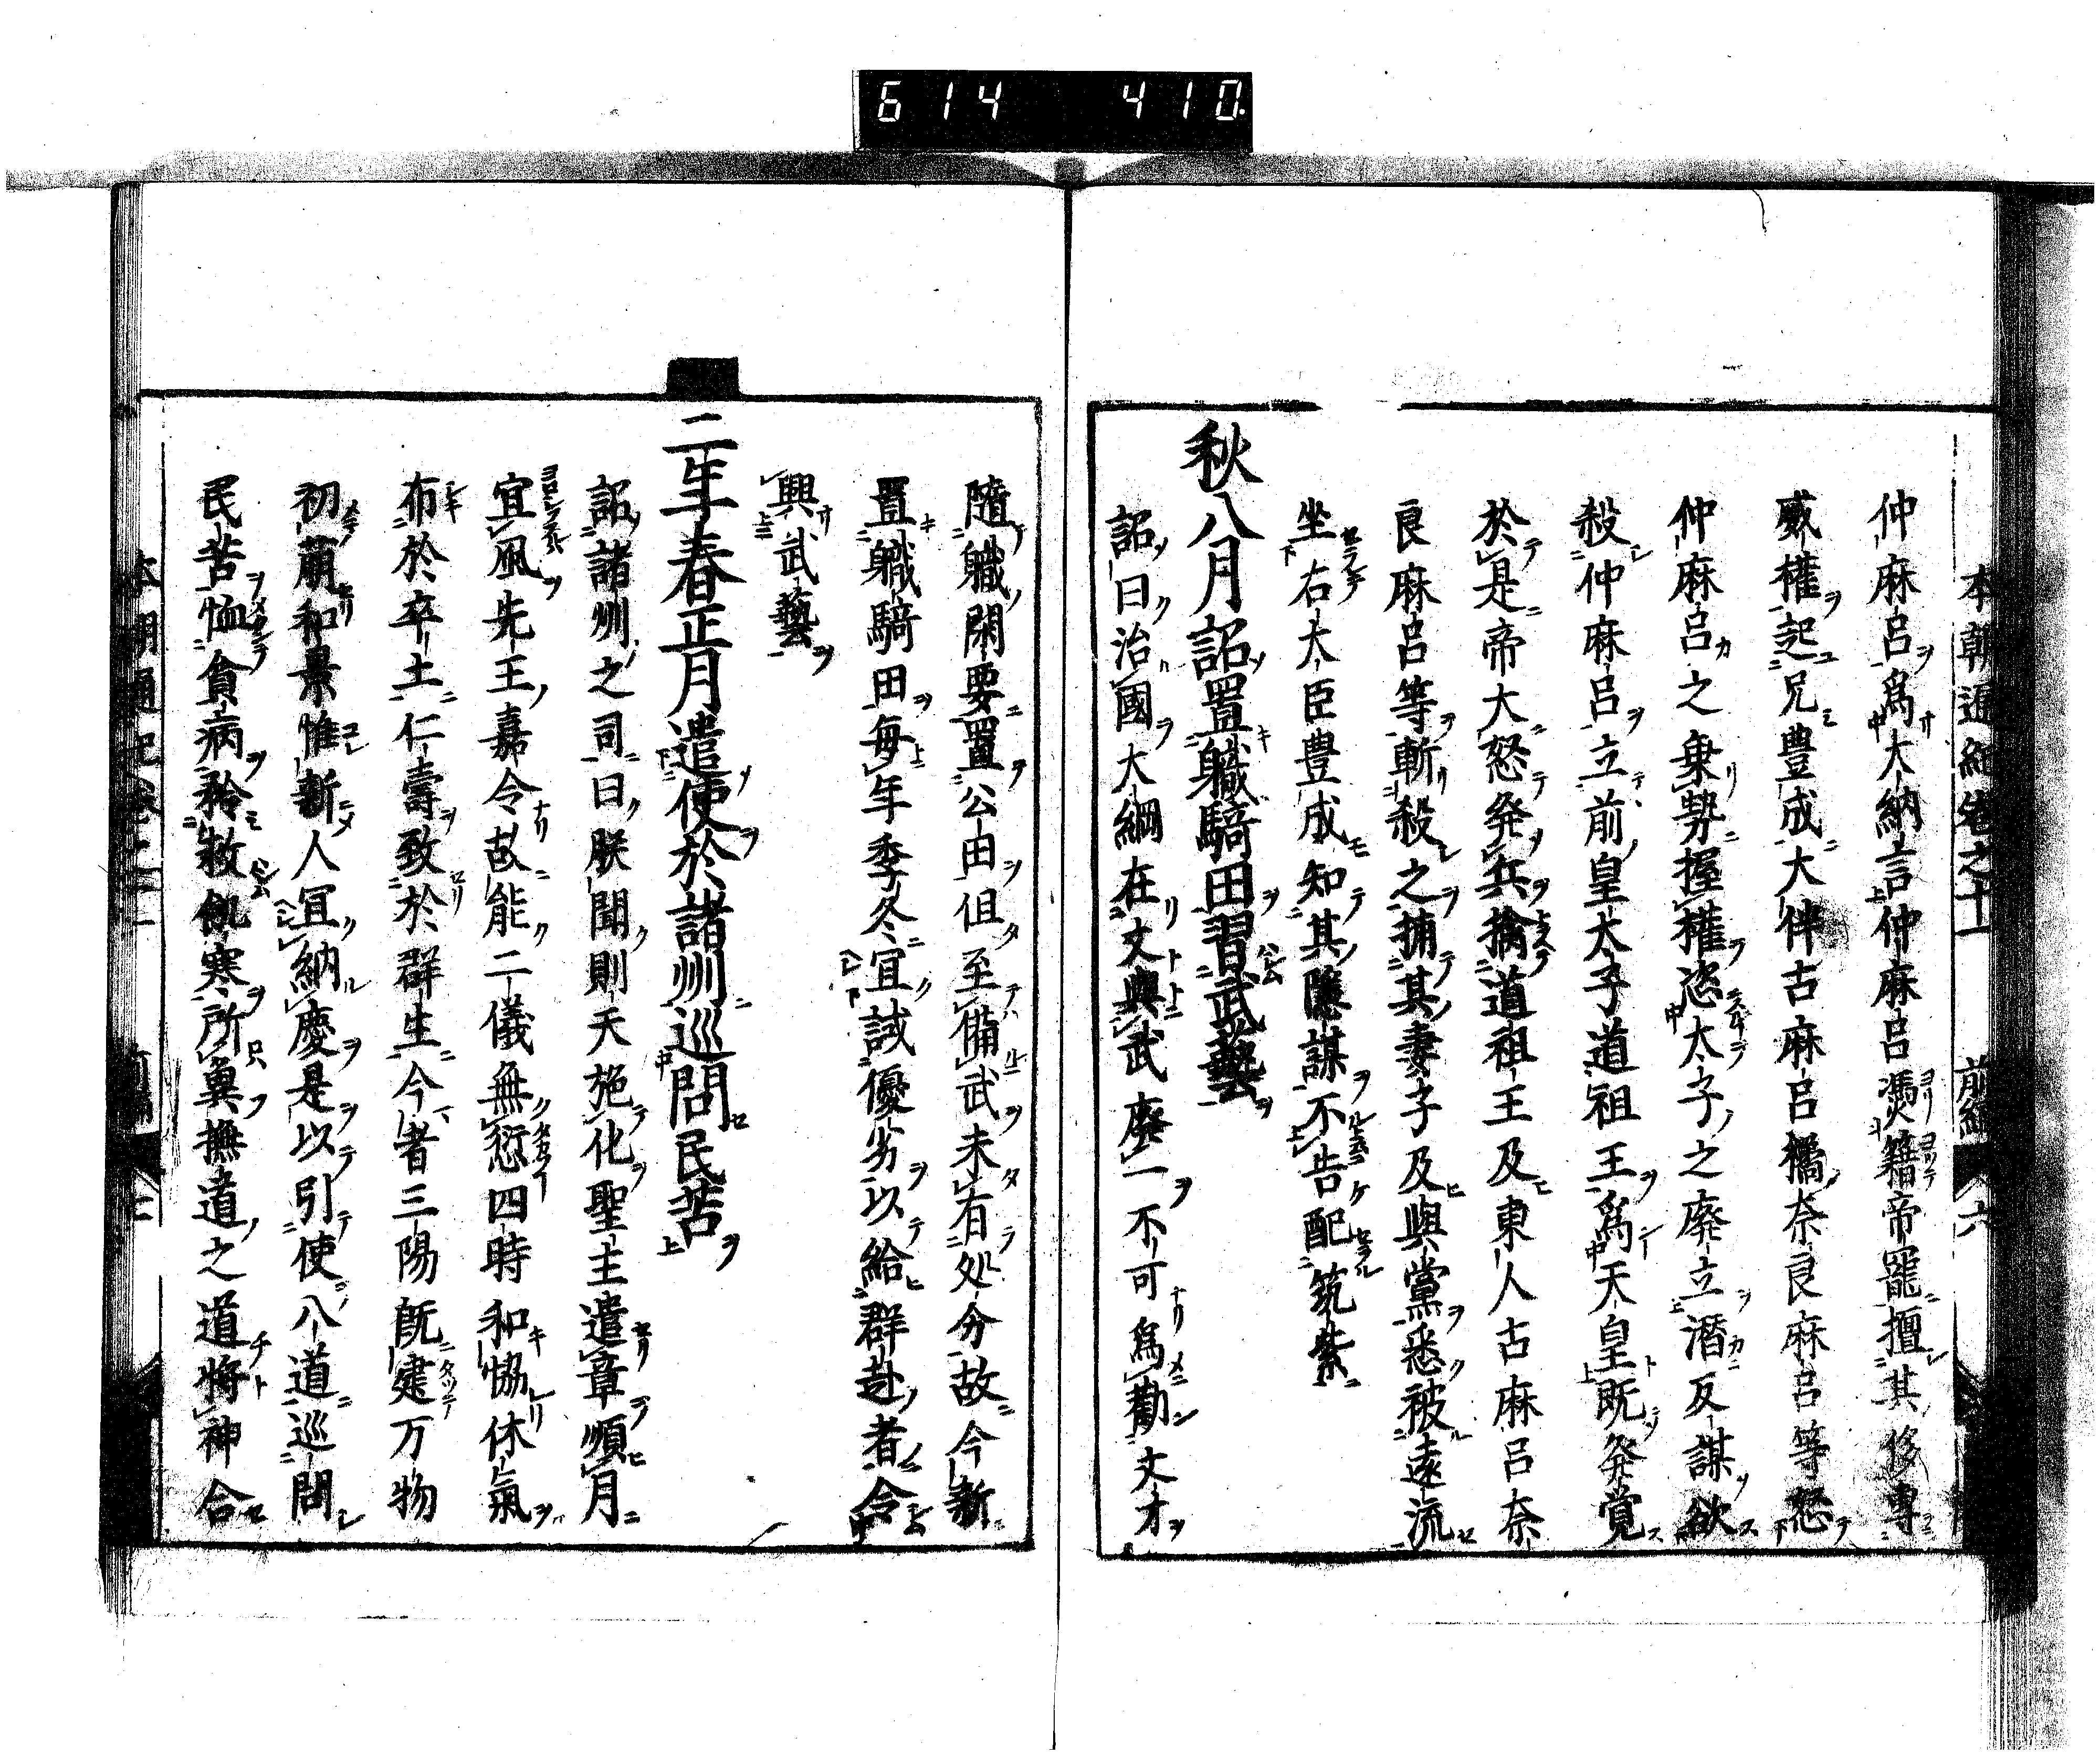 614 410
本朝通紀卷之十一 前編 六
仲麻呂爲大納言仲麻呂憑籍帝寵擅其侈專
威權起兄豊成大伴古麻呂橘奈良麻呂等怒
仲麻呂之乗勢握權恣太子之廢立潛反謀欲
殺仲麻呂立前皇太子道祖王爲天皇既発覚
於是帝大怒発兵擒道祖王及東人古麻呂奈
良麻呂等斬殺之捕其妻子及與黨悉被遠流
坐右大臣豊成知其隱謀不告配筑紫
秋八月詔置職騎田習武藝
詔曰治國大綱在文與武廢一不可爲勸文才
隨職閑要置公田但至備武未有処分故今新
置職騎田毎年季冬宜試優劣以給群赴者令
興武藝
二年春正月遣使於諸州巡問民苦
詔諸州之司曰朕聞則天施化聖主遣章順月
宜風先王嘉令故能二儀無愆四時和協休氣
布於卒土仁壽致於群生今者三陽既建万物
初萠和景惟新人宜納慶是以引使八道巡問
民苦恤貧病矜救飢寒所冀撫道之道將神合